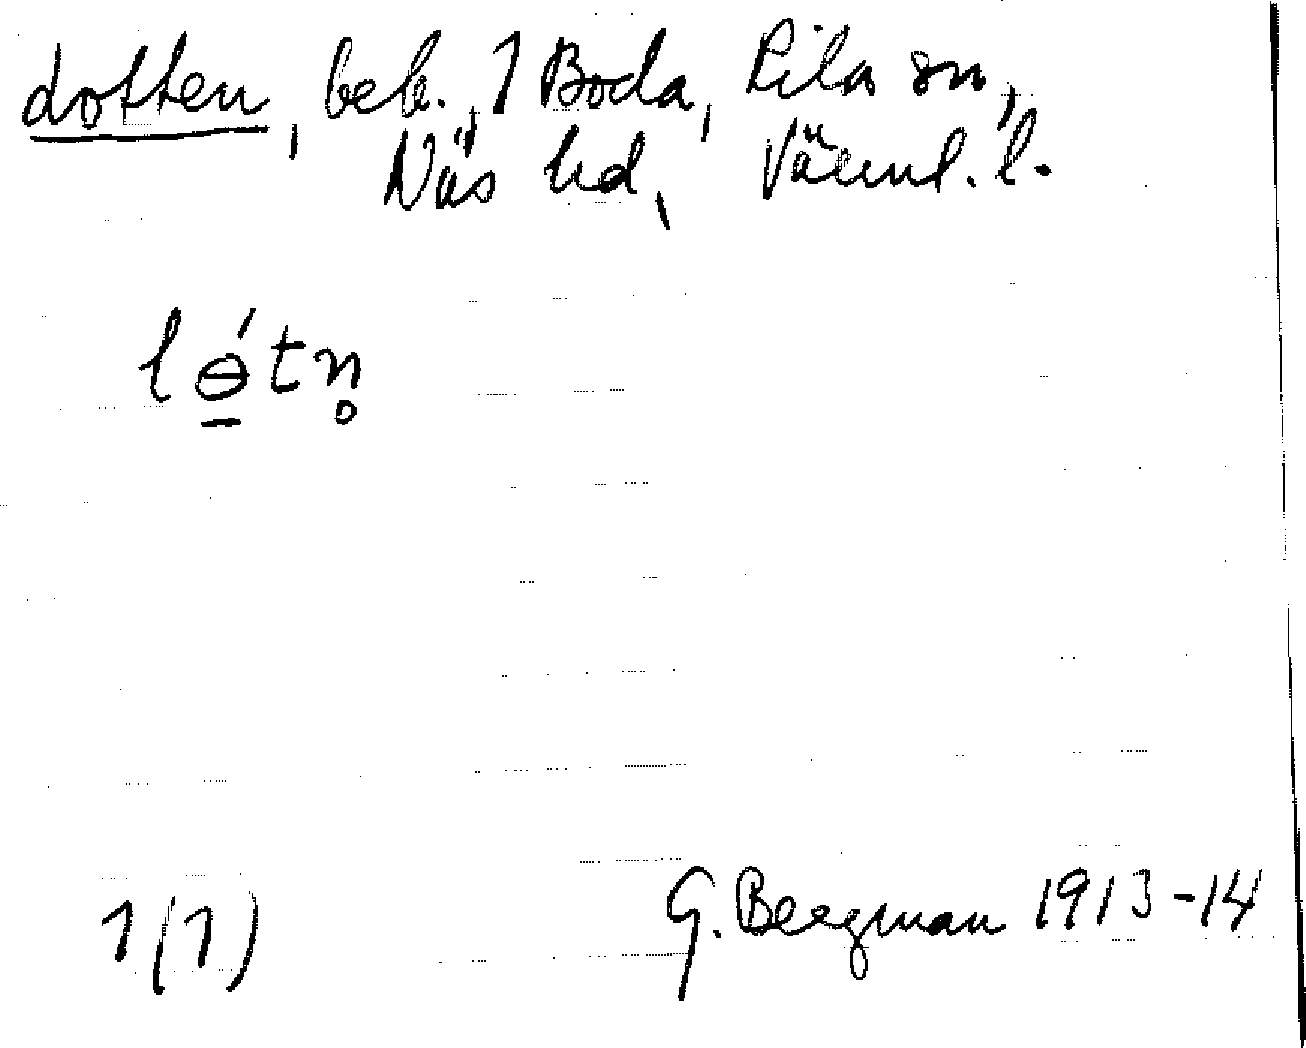 Lotten, beb., 1 Boda, Lilas sn,
Näs hd, Värml. l.
lɵ́tn̥
1(1)
G. Bergman 1913-14